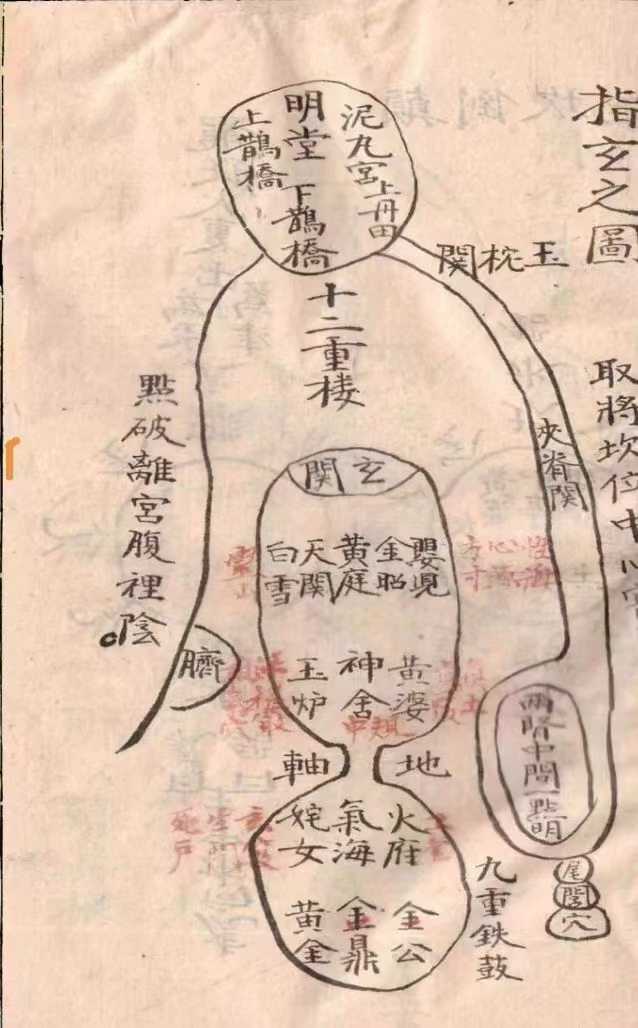 指玄之圖
取將坎位中心
泥九宮
上丹田
明堂
下鵲橋
上鵲橋
玉枕関
十二重楼
夾脊関
點破離宮腹裡陰
玄関
嬰児
金昭
黄庭
天関
白雪
方寸
黄婆
神舍
玉炉
臍
地軸
兩腎中間一點明
尾閭穴
火府
氣海
姹女
金公
金鼎
黄金
九重鉄鼓